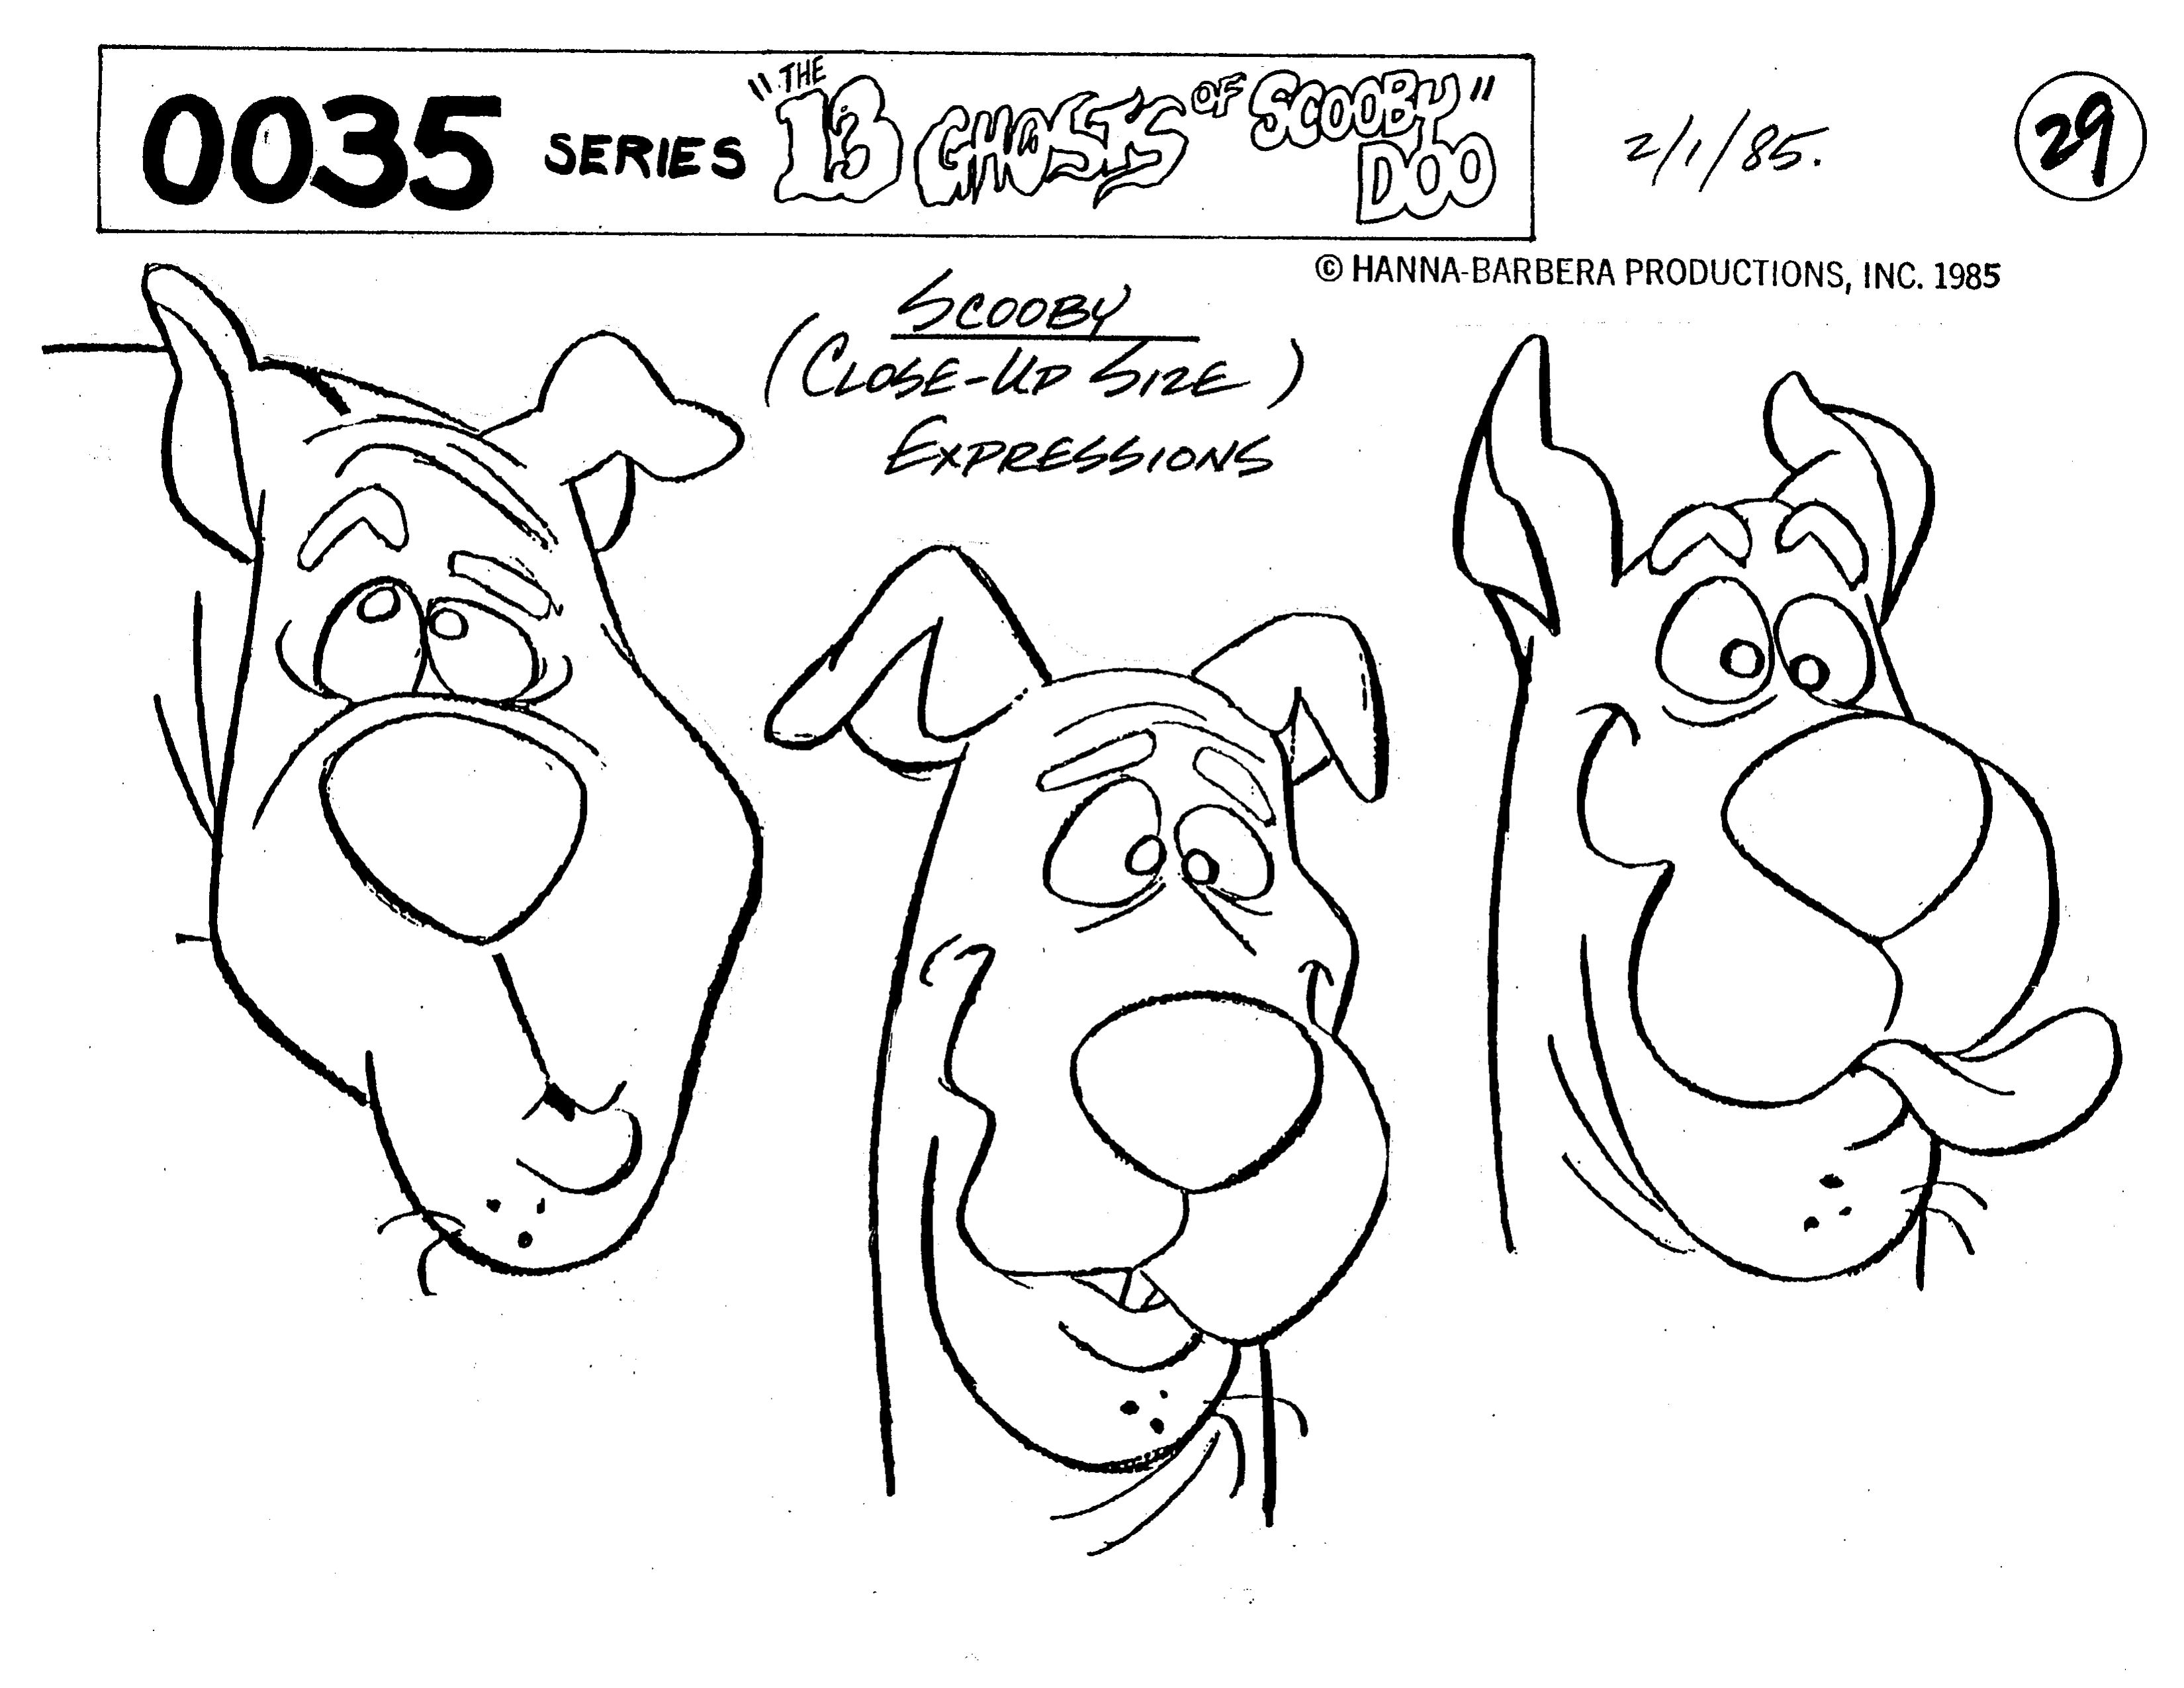 0035 SERIES "THE 13 GHOSTS OF SCOOBY DOO"
2/1/85.
29
© HANNA-BARBERA PRODUCTIONS, INC. 1985
SCOOBY
(CLOSE-UP SIZE)
EXPRESSIONS